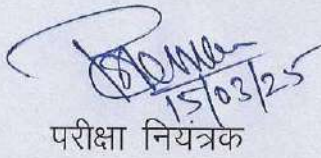 15/03/25
परीक्षा नियंत्रक